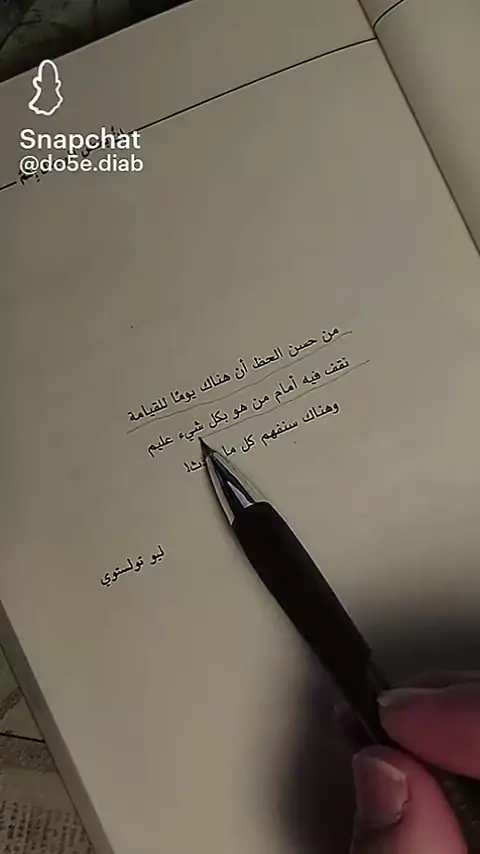 Snapchat
@do5e.diab
من حسن الحظ أن هناك يومًا للقيامة
نقف فيه أمام من هو بكل شيء عليم
وهناك سنفهم كل ما
ليو تولستوي